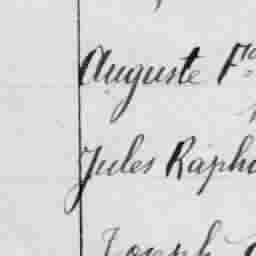 Auguste F
Jules Rapha
Joseph